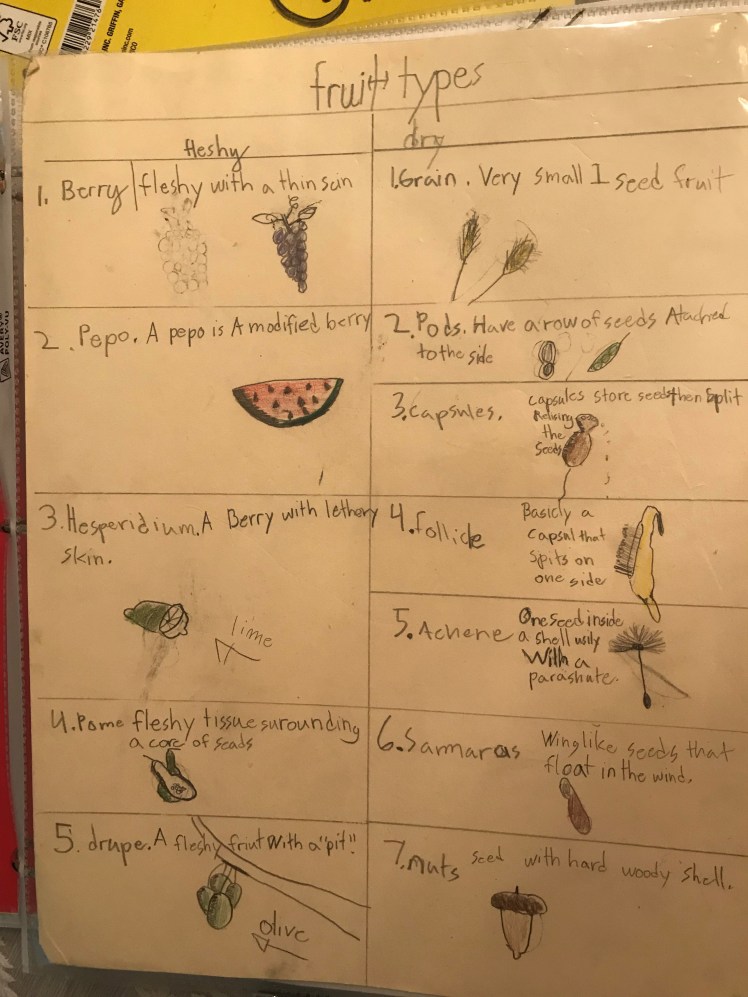 INC. GRIFFIN, GA
FSC
fruit types
fleshy
1. Berry fleshy with a thin scin
2. Pepo. A pepo is A modified berry
3. Hesperidium. A Berry with lethery
skin.
lime
4. Pome fleshy tissue surounding
a core of seads
5. drupe. A fleshy friut with a "pit".
olive
dry
1. Grain. Very small 1 seed fruit
2. Pods. Have a row of seeds Atached
to the side
3. capsules. capsules store seeds then split
Relising
the
Seeds
4. follicle Basicly a
capsul that
spits on
one side
5. Achene One seed inside
a shell usily
With a
parashute.
6. Sammaras Winglike seeds that
float in the wind.
7. nuts seed with hard woody shell.